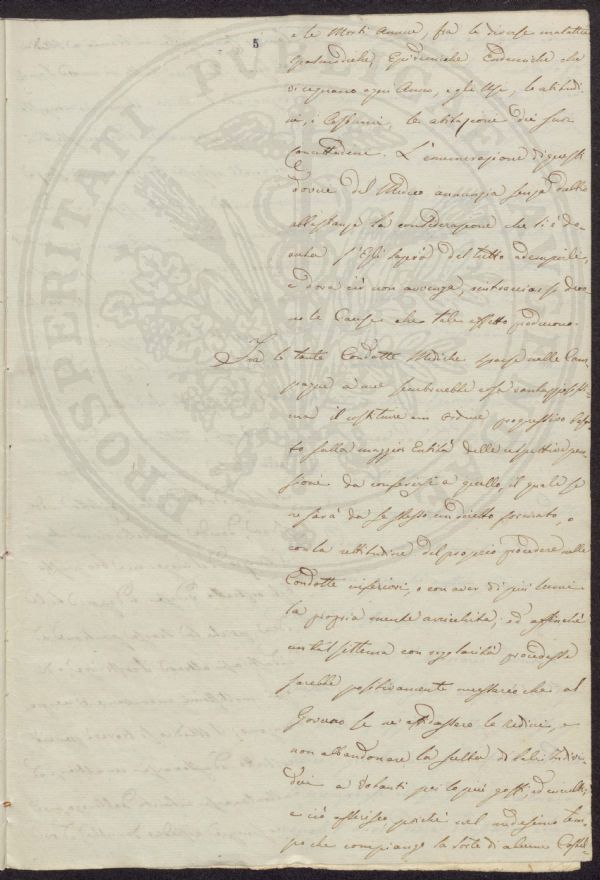 5
e le Morti Annue, fra le diverse malattie
Sporadiche, Epidemiche Endemiche che
ogni Anno, e gli Usi, le abitudi
ne, i Costumi, le abitazione dei suoi
L'enumerazione di questi
dovere del Medico annunzia senza dubbio
abbastanza la considerazione che li è do
vuta s'Egli saprà del tutto adempirli,
e dove ciò non avvenga, rintracciar si devo
no le Cause che tale effetto producono.
Fra le tante Condotte Mediche sparse nelle Cam
pagne a me sembrerebbe cosa vantaggiosissi
ma il costituire un ordine progressivo basa
to sulla maggior Entità delle rispettive pen
sioni da conferirsi a quello, il quale se
ne sarà da se stesso un diretto procurato, o
con la rettitudine del proprio procedere nelle
Condotte inferiori, o con aver di più lumi
la propria mente arricchita, ed affinché
un tal sistema con regolarità procedesse
sarebbe positivamente necessario che al
Governo se ne affidassero le redini, e
non abbandonare la scelta di tali Indivi
dui a Votanti per lo più goffi, ed incolti;
e ciò asserisco poiché nel medesimo tem
po che compiango la sorte di alcune Castel
PROSPERITATI PUBLICAE